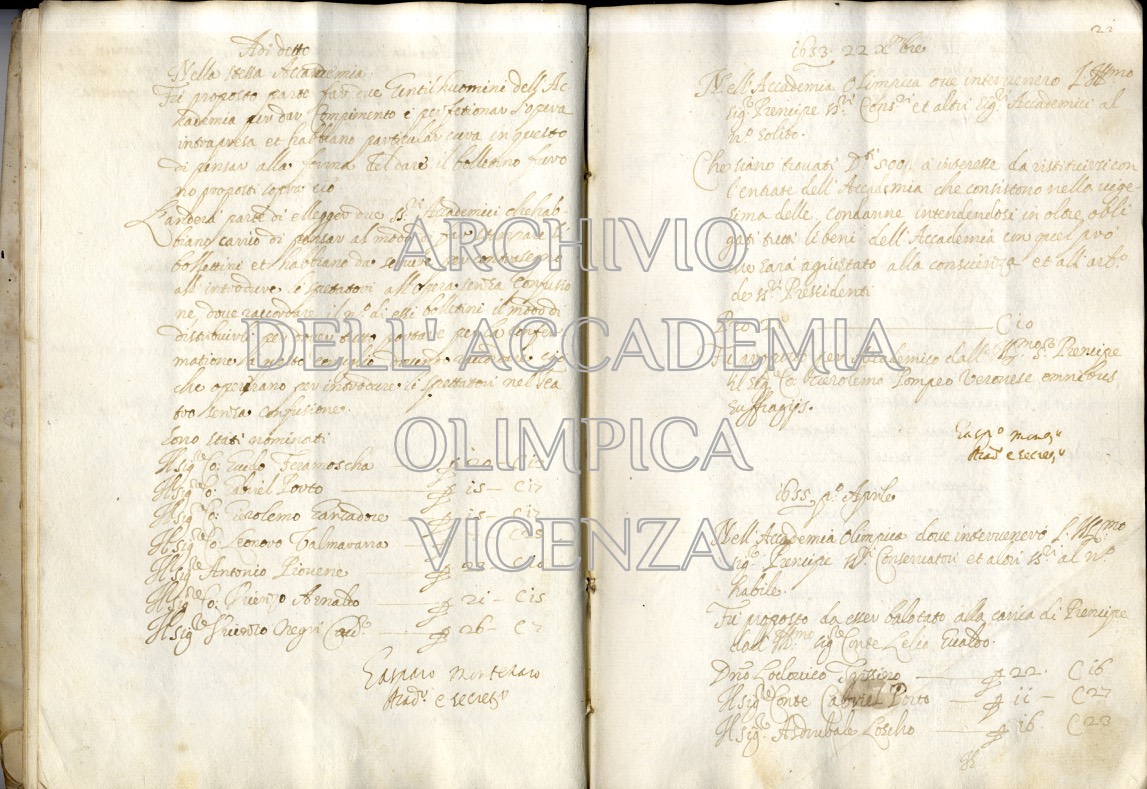 Adi detto
Nella stessa Accademia
Fu proposto parte far che Gentilhuomini dell'Ac-
kademia per dar Compimento e perfetionar l'opera
intrapresa et habbiano particular cura in questo
di pensar alla forma del dare il bollettino furo
no proposti sopra ciò
L'anderà parte di elleggeo due ss.ri Accademici che hab-
biano carico di pensar al modo di far stampare li
bollettini et habbiano da servire per contrasegno
all'introdure i spettatori all'opera senza confusio
ne, dove raccordare il n.o di essi bollettini il modo di
distribuirli per dover esser portate per la confir-
matione a questo conseglio dovendo raccordar ciò
che operirano per introdure i spettatori nel Tea
tro senza confusione.
Sono stati nominati
Il sig.r Co: Guido Teramoscha — p 20 C 18
Il sig.r Co: Gabriel Porto — p 15 — C 17
Il sig.r Co: Gierolemo Garzadore — p 15 — C 17
Il sig.r Co: Leonoro Valmarana
Il sig.r Antonio Piovene — p 23 — C
Il sig.r Co: Vicenzo Arnaldo — p 21 — C 15
Il sig.r Vicenzo Negri Cav.r — p 26 — C 7
Gasparo Montenaro
Acad.o e secret.o
21
1653 22 Xmbre
Nell'Accademia Olimpica ove intervenero l'Ill.mo
sig.r Prencipe ss.ri Cons.ri et altri sig.ri Accademici al
n.o solito.
Che siano trovati D.ti 500 à interesse da ristituirsi con
l'entrate dell'Accademia che consistono nella vige
sima delle condanne intendendosi in oltre obli
gati tutti li beni dell'Accademia con quel prò
che sarà agiustato alla conscienza et all'arb.o
de ss.ri Pressidenti
Pro — C 10
Fu proposto per Accademico dall'Ill.mo s.r Prencipe
Il sig.r Co: Gierolemo Pompeo Veronese omnibus
suffragijs.
Acad.o e secret.o
1655 p.o Aprile
Nell'Accademia Olimpica dove intervenerò l'Ill.mo
sig.r Prencipe ss.ri Conservatori et altri ss.ri al n.o
habile.
Fu proposto da esser balotato alla carica di Prencipe
dall'Ill.mo sig.r Conte Lelio Gualdo.
Dno Lodovico Trissino — p 22. C 16
Il sig.r Conte Gabriel Porto — p 11 — C 27
Il sig.r Asdrubale Loscho — p 16. C 23
Il
ARCHIVIO
DELL'ACCADEMIA
OLIMPICA
VICENZA